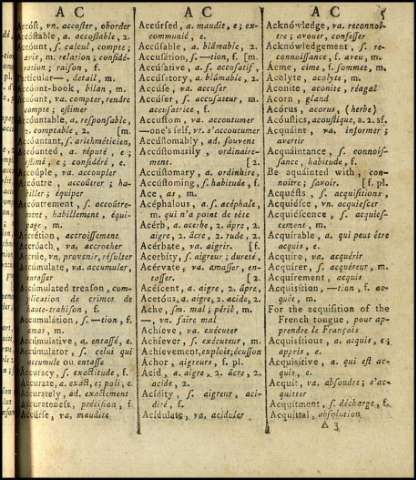 A C
Accóst, vn. accoster, aborder
Accóstable, a. accostable, 2.
Account, s. calcul, compte;
m. relation; considé-
ration; raison, f.
Particular—, detail, m.
Account-book, bilan, m.
Account, va. compter, rendre
compte; estimer
Accountable, a. responsable,
comptable, 2. [m.
Accountant, s. arithméticien,
Accounted, a. réputé, e;
estimé, e; considéré, e.
Accouple, va. accoupler
Accoutre, accoûtrer; ha-
biller; équiper
Accoutrement, s. accoûtre-
ment, habillement, équi-
page, m.
Accretion, accroissement
Accróach, va. accrocher
Accrue, vn. provenir, résulter
Accumulate, va. accumuler,
Accumulated treason, com-
plication de crimes de
haute-trahison, f.
Accumulation, s. —tion, f.
amas, m.
Accumulative, a. entassé, e.
Accumulator, s. celui qui
accumule ou entasse
Accuracy, s. exactitude, f.
Accurate, a. exact, e; poli, e.
Accurately, ad. exactement
Accurateness, précision, f.
Accurse, va. maudire
A C
Accursed, a. maudit, e; ex-
communié, e.
Accusable, a. blâmable, 2.
Accusation, s. —tion, f. [m.
Accusative, a. s. accusatif,
Accusatory, a. blâmable, 2.
Accuse, va. accuser
Accuser, s. accusateur, m.
accusatrice, f.
Accustom, va. accoutumer
—one's self, vr. s'accoutumer
Accustomably, ad. souvent
Accustomarily, ordinaire-
ment. [2.
Accustomary, a. ordinaire,
Accustoming, s. habitude, f.
Ace, as, m.
Acéphalous, a. s. acéphale,
m. qui n'a point de tête
Acérb, a. acerbe, 2. âpre, 2.
aigre, 2. âcre, 2. rude, 2.
Acérbate, va. aigrir. [f.
Acerbity, s. aigreur; dureté,
Acérvate, va. amasser, en-
tasser. [2.
Acéscent, a. aigre, 2. âpre,
Acetóus, a. aigre, 2. acide, 2.
Ache, s. m. mal; péril, m.
—, vn. faire mal
Achieve, va. exécuter
Achiever, s. exécuteur, m.
Achievement, exploit, écusson
Achor, aigreurs, f. pl.
Acid, a. aigre, 2. âcre, 2.
acide, 2.
Acidity, s. aigreur, aci-
dité, f.
Acidulate, va. aciduler
A C 5
Acknowledge, va. reconnoî-
tre; avouer, confesser
Acknowledgement, s. re-
connoissance, f. aveu, m.
Acme, cime, f. sommet, m.
Acolyte, acolyte, m.
Aconite, aconite, réagal
Acorn, gland
Acórus, acorus, (herbe)
Acóustics, acoustique, a. 2. sf.
Acquaint, va. informer;
avertir
Acquaintance, s. connois-
sance, habitude, f.
Be acquainted with, con-
noître; savoir. [f. pl.
Acquests, s. acquisitions,
Acquiésce, vn. acquiescer
Acquiéscence, s. acquies-
cement, m.
Acquirable, a. qui peut être
acquis, e.
Acquire, va. acquérir
Acquirer, s. acquéreur, m.
Acquirement, acquit
Acquisition, —tion, f. ac-
quêt, m.
For the acquisition of the
French tongue, pour ap-
prendre le François
Acquisitious, a. acquis, e;
appris, e.
Acquisitive, a. qui est ac-
quis, e.
Acquit, va. absoudre; s'ac-
quitter
Acquitment, s. décharge, f.
Acquittal, absolution
A 3